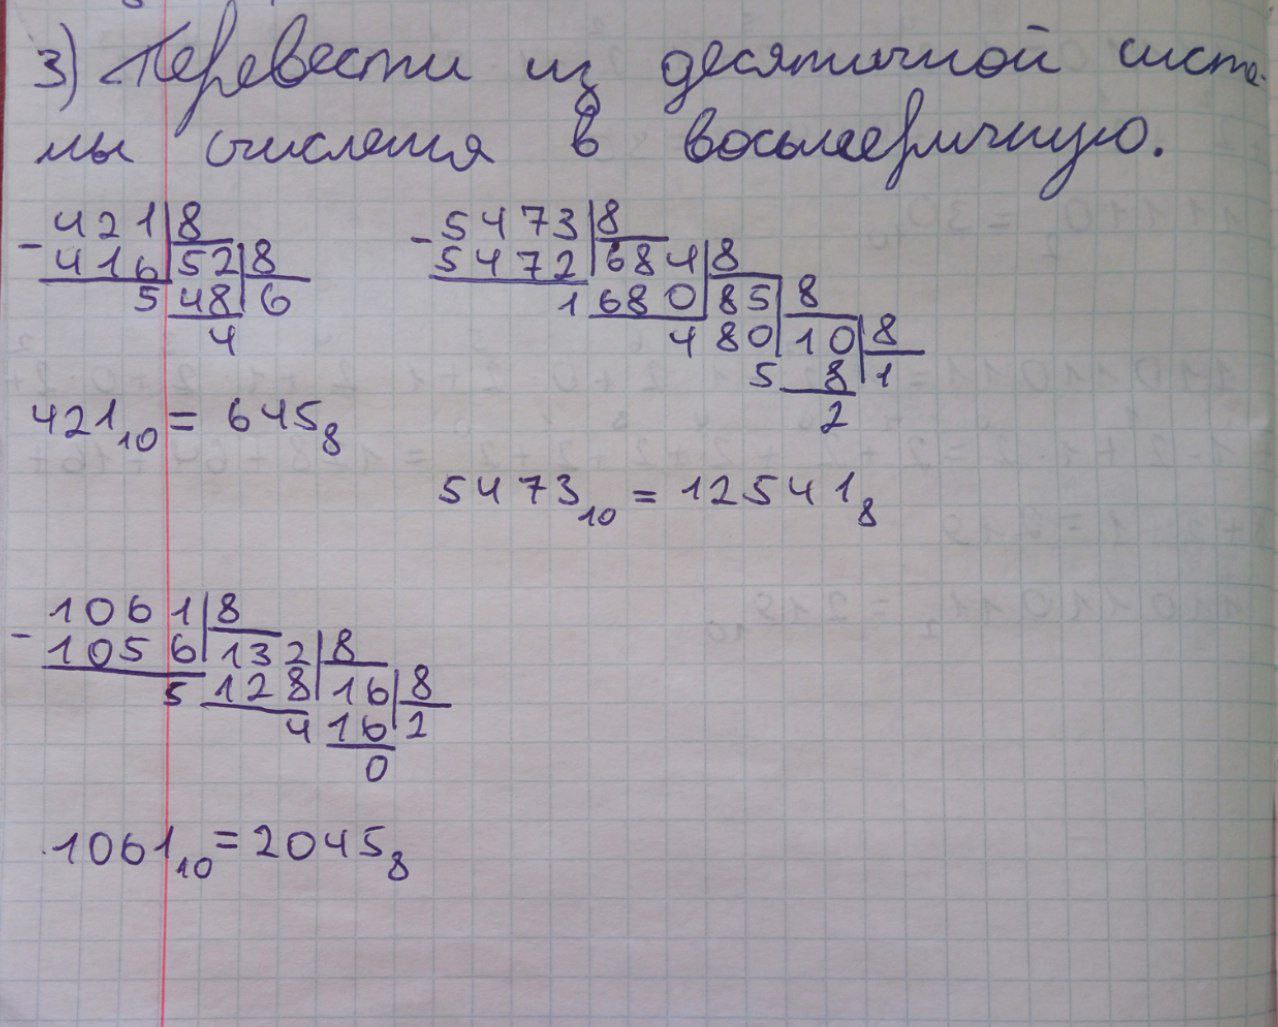 3) Перевести из десятичной систе-
мы счисления в восьмеричную.
421 | 8
- 416 | 52 | 8
5 | 48 | 6
4
421₁₀ = 645₈
5473 | 8
- 5472 | 684 | 8
1 | 680 | 85 | 8
4 | 80 | 10 | 8
5 | 8 | 1
2
5473₁₀ = 12541₈
1061 | 8
- 1056 | 132 | 8
5 | 128 | 16 | 8
4 | 16 | 2
0
1061₁₀ = 2045₈